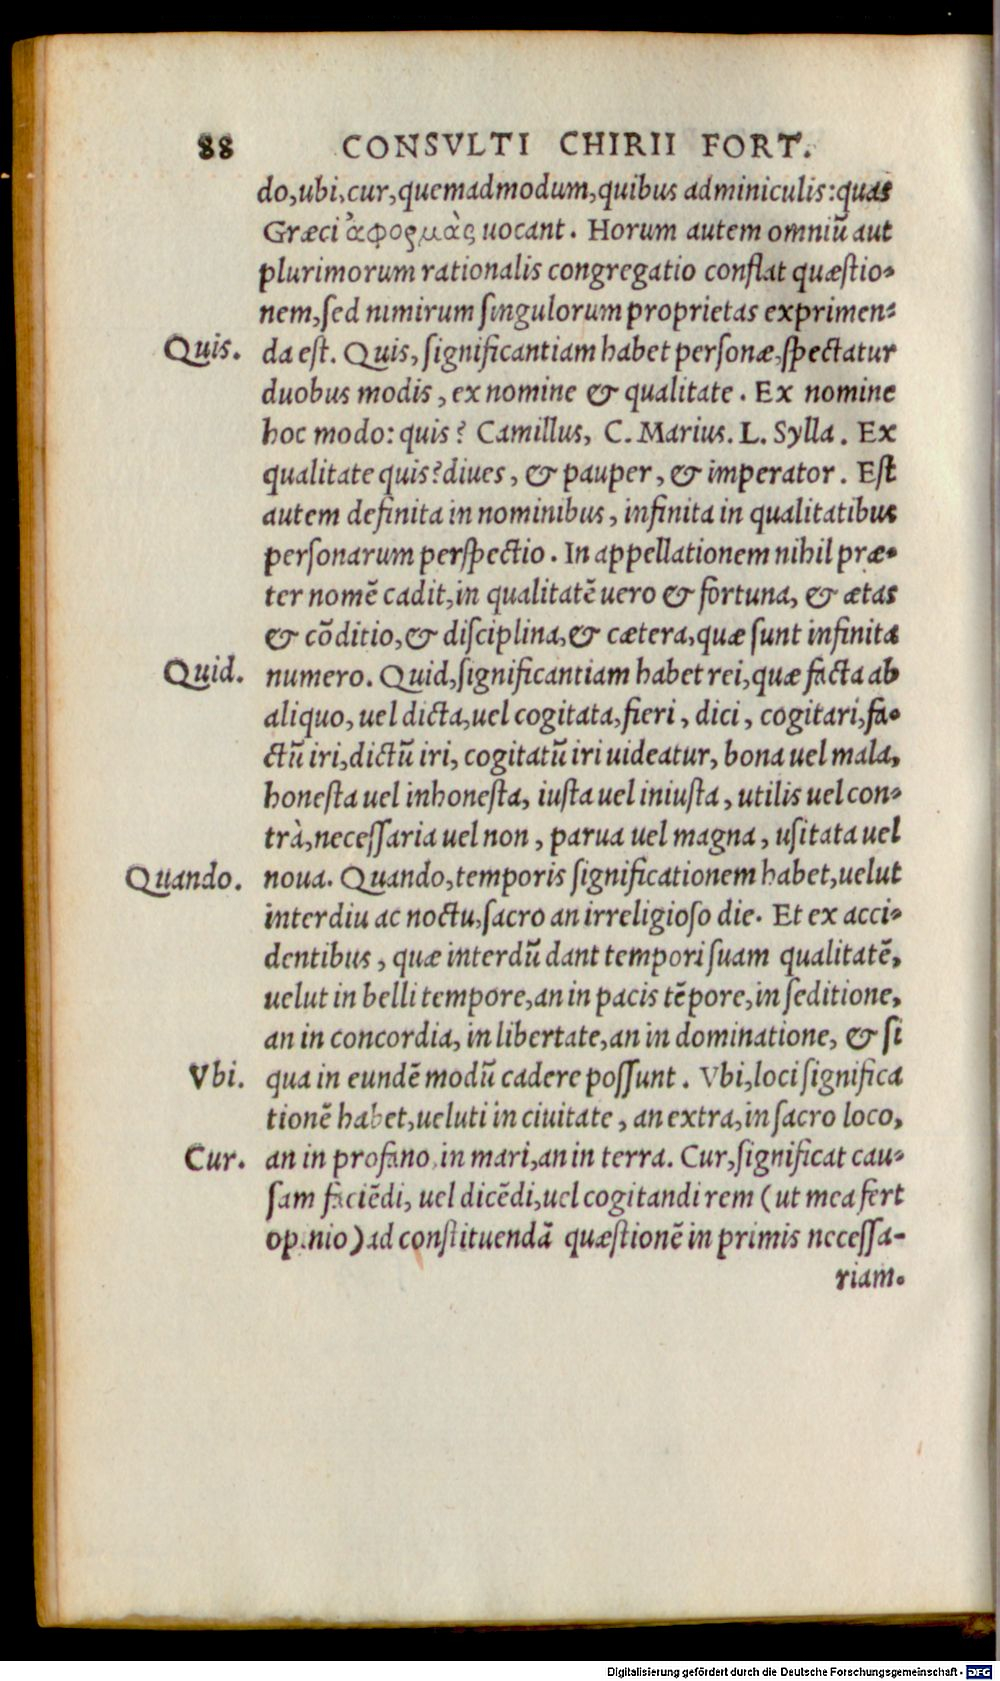 88 CONSVLTI CHIRII FORT.
do, ubi, cur, quemadmodum, quibus adminiculis: quas
Græci ἀφορμὰς uocant. Horum autem omniũ aut
plurimorum rationalis congregatio conflat quæſtio-
nem, ſed nimirum ſingulorum proprietas exprimen-
Quis. da eſt. Quis, ſignificantiam habet perſonæ, ſpectatur
duobus modis, ex nomine & qualitate. Ex nomine
hoc modo: quis? Camillus, C. Marius. L. Sylla. Ex
qualitate quis? diues, & pauper, & imperator. Eſt
autem definita in nominibus, infinita in qualitatibus
perſonarum perſpectio. In appellationem nihil præ-
ter nomẽ cadit, in qualitatẽ uero & fortuna, & ætas
& cõditio, & diſciplina, & cætera, quæ ſunt infinita
Quid. numero. Quid, ſignificantiam habet rei, quæ facta ab
aliquo, uel dicta, uel cogitata, fieri, dici, cogitari, fa-
ctũ iri, dictũ iri, cogitatũ iri uideatur, bona uel mala,
honeſta uel inhoneſta, iuſta uel iniuſta, utilis uel con-
trà, neceſſaria uel non, parua uel magna, uſitata uel
Quando. noua. Quando, temporis ſignificationem habet, uelut
interdiu ac noctu, ſacro an irreligioſo die. Et ex acci-
dentibus, quæ interdũ dant tempori ſuam qualitatẽ,
uelut in belli tempore, an in pacis tẽpore, in ſeditione,
an in concordia, in libertate, an in dominatione, & ſi
Vbi. qua in eundẽ modũ cadere poſſunt. Vbi, loci ſignifica
tionẽ habet, ueluti in ciuitate, an extra, in ſacro loco,
Cur. an in profano, in mari, an in terra. Cur, ſignificat cau-
ſam faciẽdi, uel dicẽdi, uel cogitandi rem (ut mea fert
opinio) ad conſtituendã quæſtionẽ in primis neceſſa-
riam.
Digitalisierung gefördert durch die Deutsche Forschungsgemeinschaft - DFG